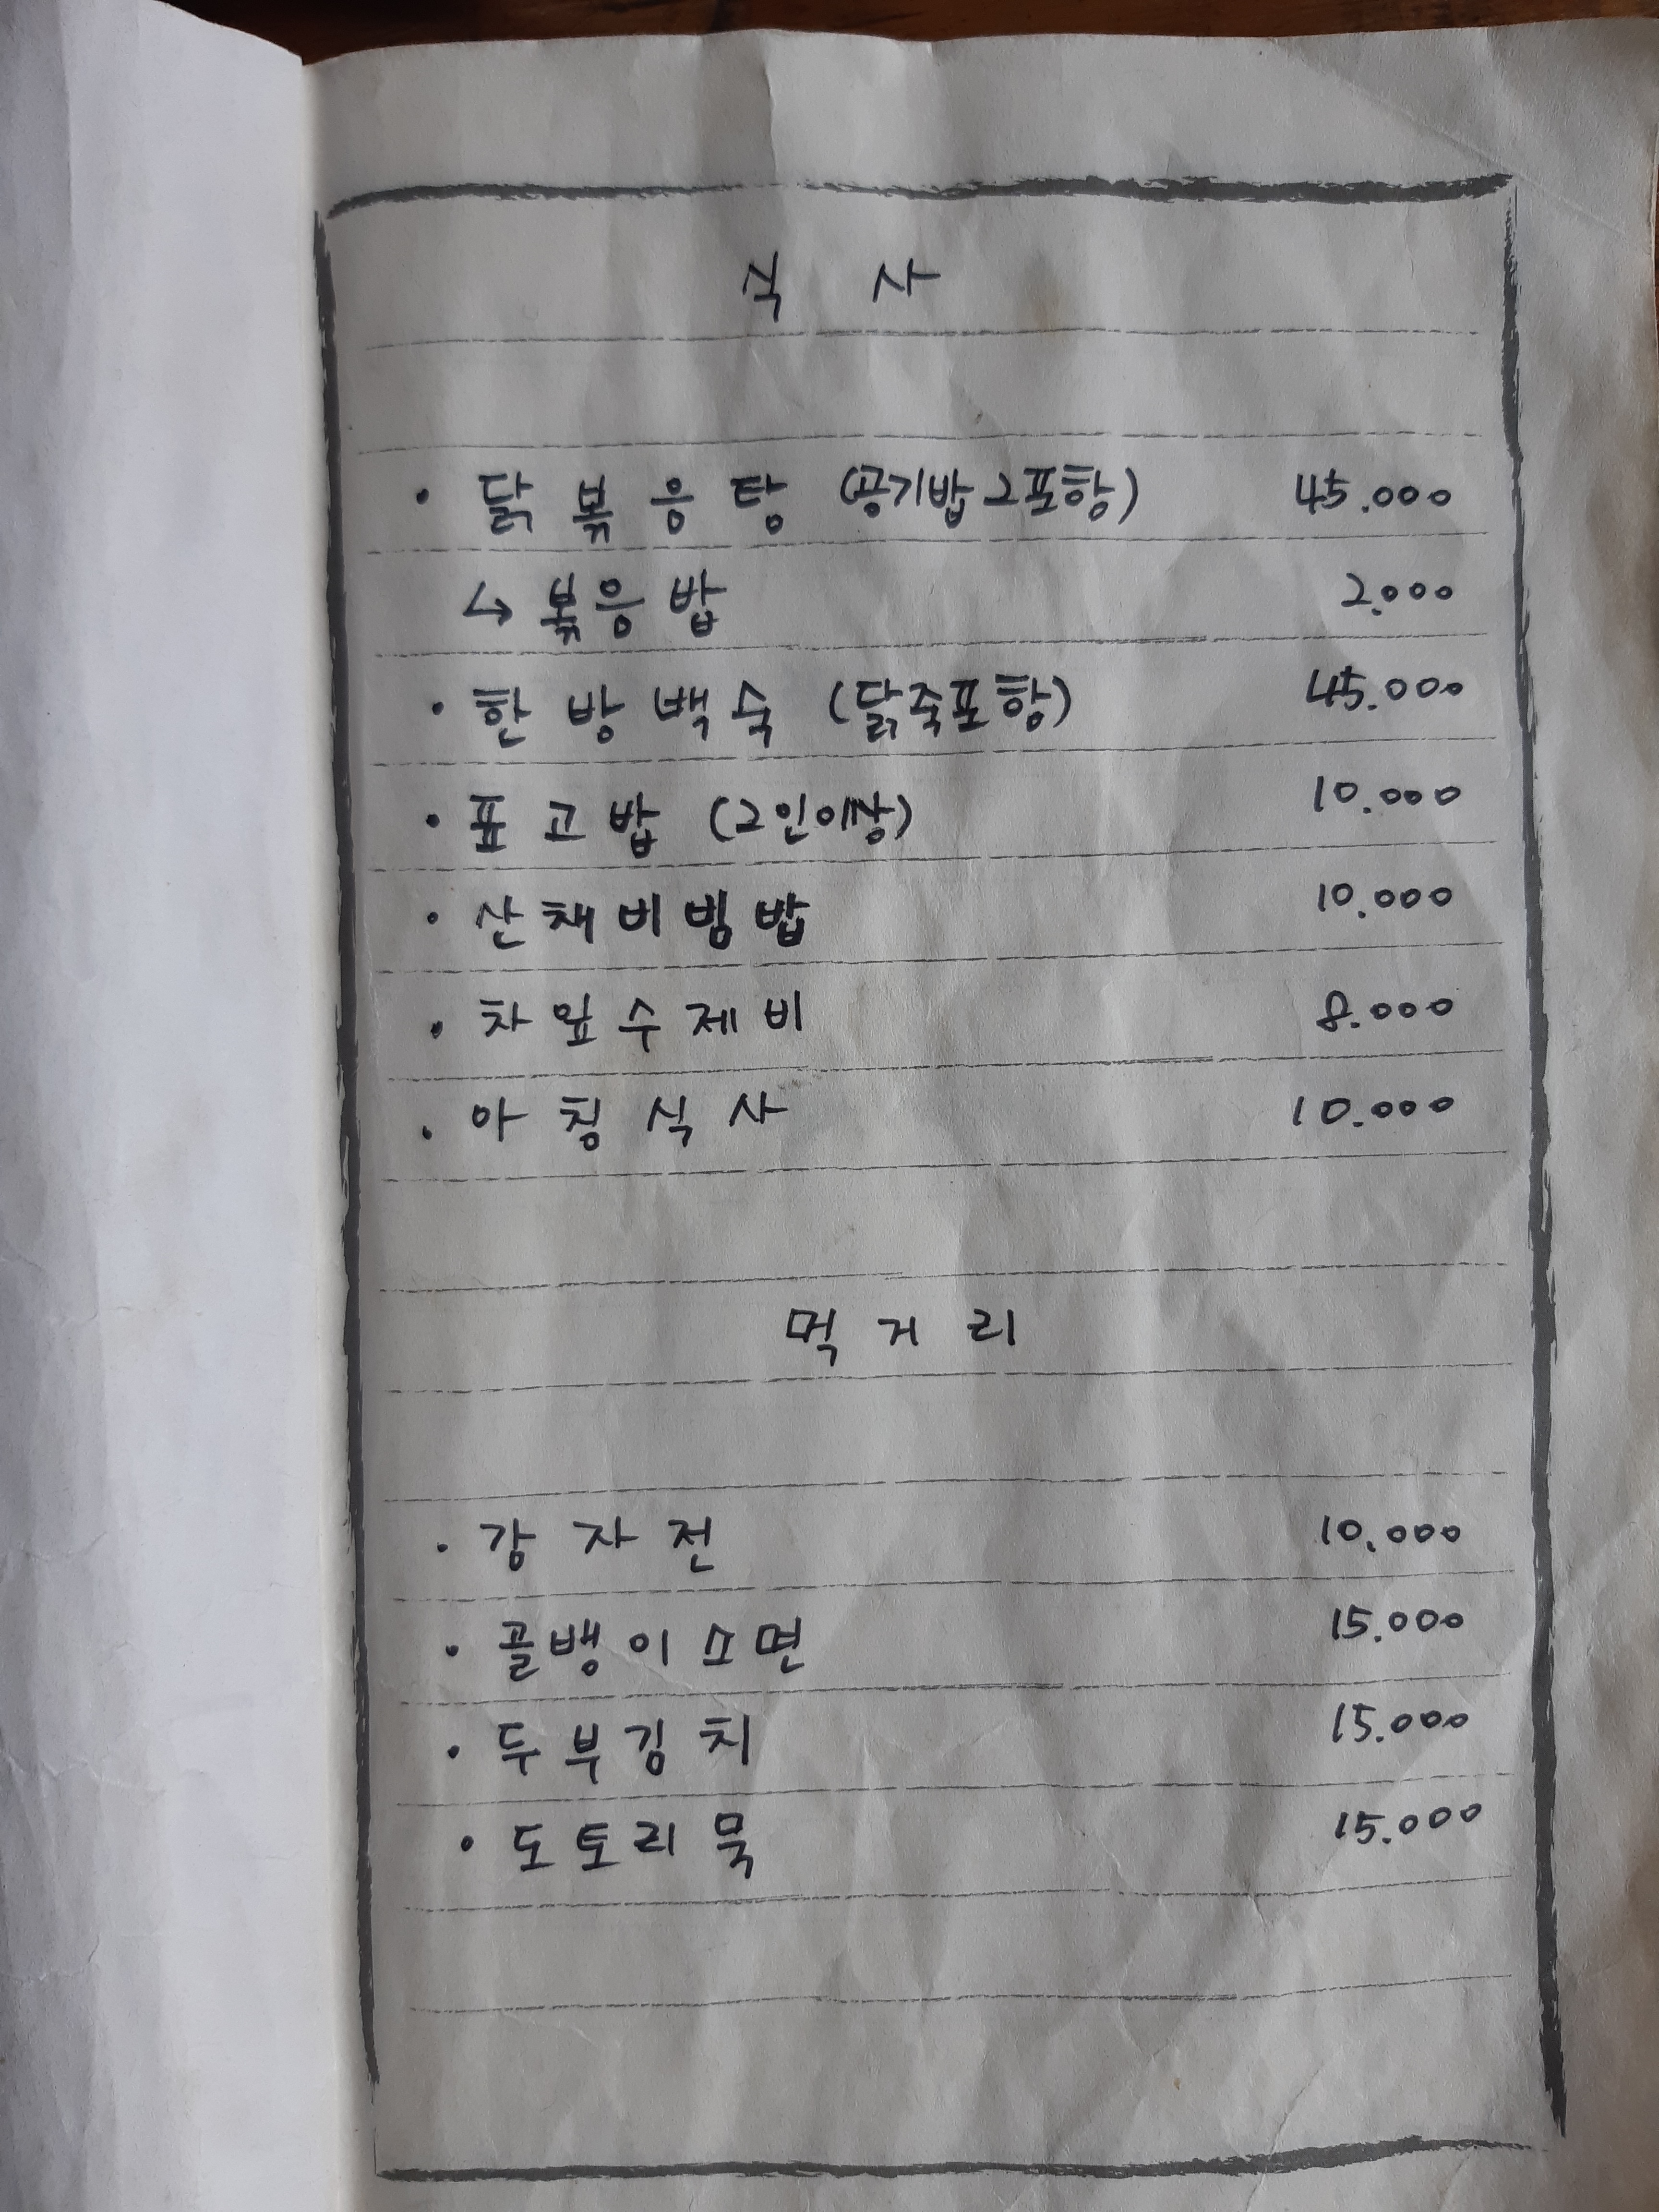 식 사
· 닭볶음탕 (공기밥 2포함) 45.000
↳ 볶음밥 2.000
· 한방백숙 (닭죽포함) 45.000
· 표고밥 (2인이상) 10.000
· 산채비빔밥 10.000
· 차잎수제비 8.000
· 아침식사 10.000
먹 거 리
· 감자전 10.000
· 골뱅이소면 15.000
· 두부김치 15.000
· 도토리묵 15.000